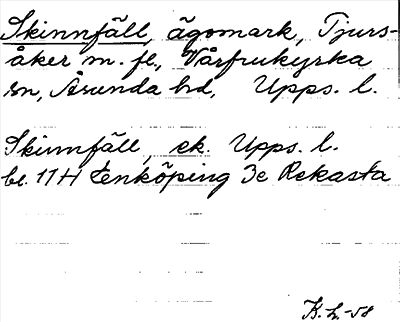 Skinnfäll, ägomark, Tjurs-
åker m. fl., Vårfrukyrka
sn, Åsunda hd, Upps. l.
Skinnfäll, ek. Upps. l.
bl. 11H Enköping 3e Rekasta
K. L. -58